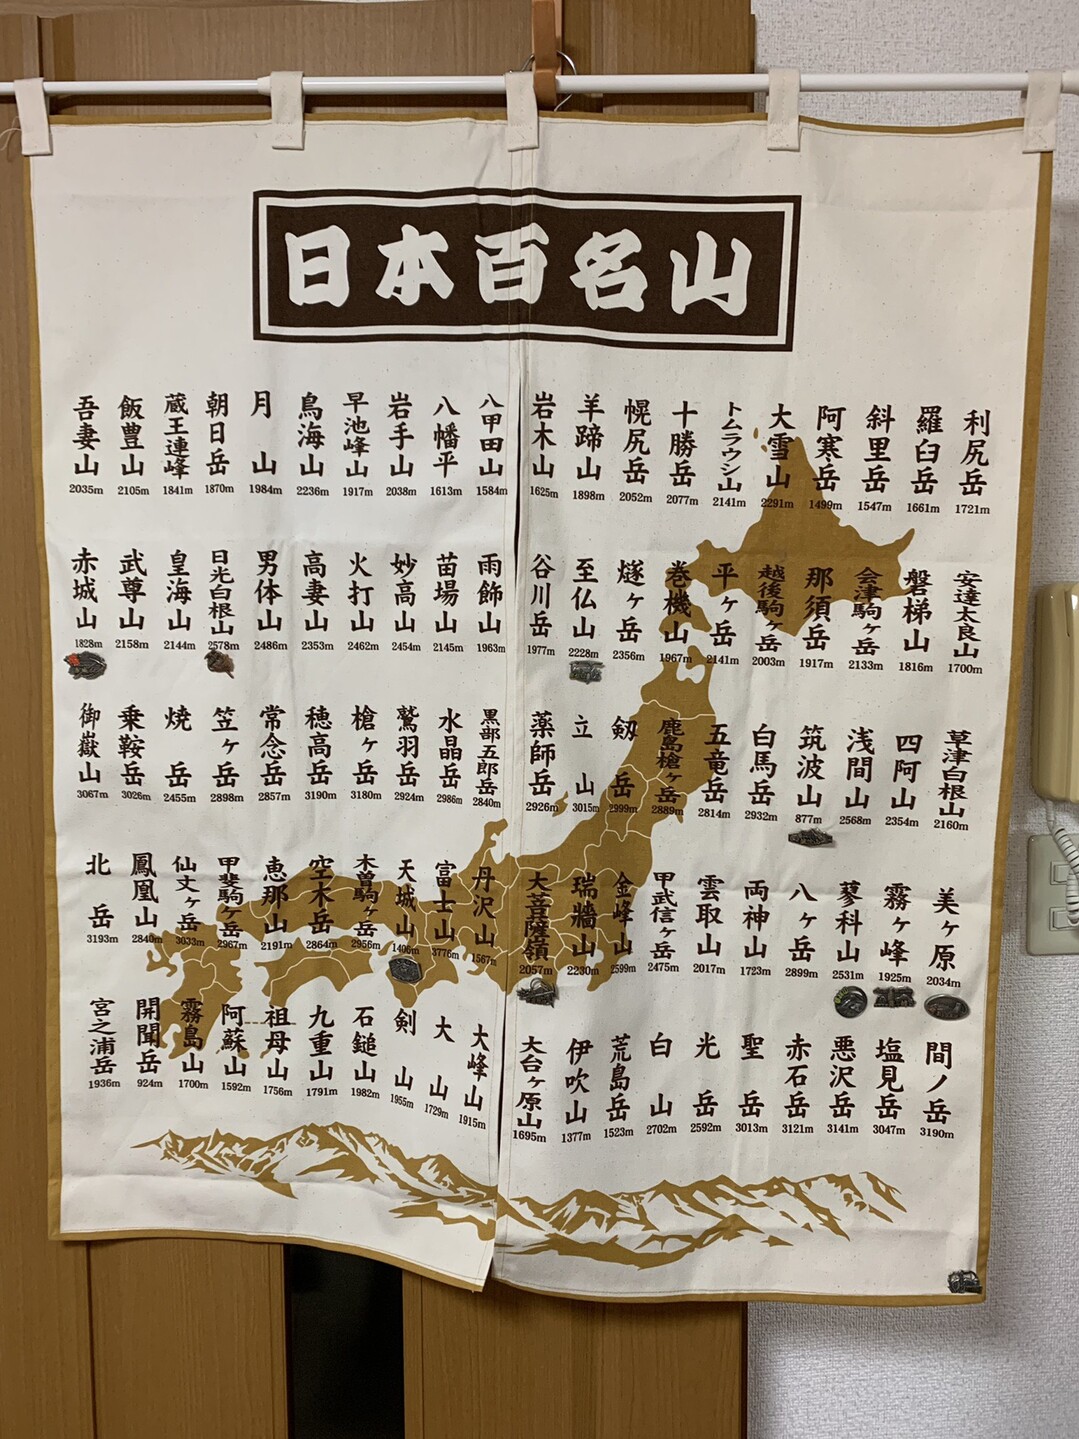 日本百名山
利尻岳 1721m
羅臼岳 1661m
斜里岳 1547m
阿寒岳 1499m
大雪山 2291m
トムラウシ山 2141m
十勝岳 2077m
幌尻岳 2052m
羊蹄山 1898m
岩木山 1625m
八甲田山 1584m
八幡平 1613m
岩手山 2038m
早池峰山 1917m
鳥海山 2236m
月山 1984m
朝日岳 1870m
蔵王連峰 1841m
飯豊山 2105m
吾妻山 2035m
安達太良山 1700m
磐梯山 1816m
会津駒ヶ岳 2133m
那須岳 1917m
越後駒ヶ岳 2003m
平ヶ岳 2141m
巻機山 1967m
燧ヶ岳 2356m
至仏山 2228m
谷川岳 1977m
雨飾山 1963m
苗場山 2145m
妙高山 2454m
火打山 2462m
高妻山 2353m
男体山 2486m
日光白根山 2578m
皇海山 2144m
武尊山 2158m
赤城山 1828m
草津白根山 2160m
四阿山 2354m
浅間山 2568m
筑波山 877m
白馬岳 2932m
五竜岳 2814m
鹿島槍ヶ岳 2889m
剱岳 2999m
立山 3015m
薬師岳 2926m
黒部五郎岳 2840m
水晶岳 2986m
鷲羽岳 2924m
槍ヶ岳 3180m
穂高岳 3190m
常念岳 2857m
笠ヶ岳 2898m
焼岳 2455m
乗鞍岳 3026m
御嶽山 3067m
美ヶ原 2034m
霧ヶ峰 1925m
蓼科山 2531m
八ヶ岳 2899m
両神山 1723m
雲取山 2017m
甲武信ヶ岳 2475m
金峰山 2599m
瑞牆山 2230m
大菩薩嶺 2057m
丹沢山 1567m
富士山 3776m
天城山 1406m
木曽駒ヶ岳 2956m
空木岳 2864m
恵那山 2191m
甲斐駒ヶ岳 2967m
仙丈ヶ岳 3033m
鳳凰山 2840m
北岳 3193m
間ノ岳 3190m
塩見岳 3047m
悪沢岳 3141m
赤石岳 3121m
聖岳 3013m
光岳 2592m
白山 2702m
荒島岳 1523m
伊吹山 1377m
大台ヶ原山 1695m
大峰山 1915m
大山 1729m
剣山 1955m
石鎚山 1982m
九重山 1791m
祖母山 1756m
阿蘇山 1592m
霧島山 1700m
開聞岳 924m
宮之浦岳 1936m